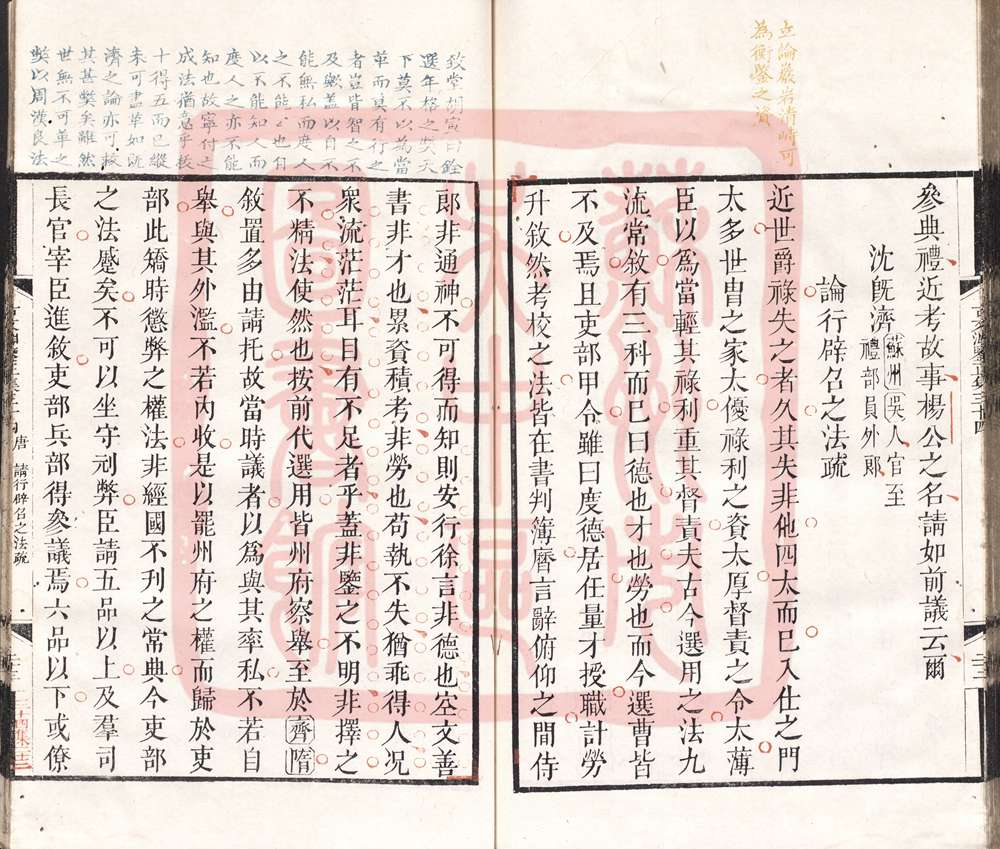 立論巖岩清峙可
為衡鑒之資
參典禮近考故事楊公之名請如前議云爾
沈旣濟蘇州吳人官至禮部員外郞
論行辟召之法疏
近世爵祿失之者久其失非他四太而已入仕之門
太多世冑之家太優祿利之資太厚督責之令太薄
臣以爲當輕其祿利重其督責夫古今選用之法九
流常敘有三科而已曰德也才也勞也而今選曹皆
不及焉且吏部甲令雖曰度德居任量才授職計勞
升敘然考校之法皆在書判簿曆言辭俯仰之間侍
致堂胡寅曰銓
選年格之弊天
下莫不以為當
革而莫有行之
者豈皆智之不
及歟蓋以自不
能無私而度人
之不能公也自
以不能知人而
度人之亦不能
知也故寧付之
成法猶意乎拔
十得五而已縱
未可盡革如沈
濟之論亦可救
其甚弊矣雖然
世無不可革之
弊以周漢良法
郞非通神不可得而知則安行徐言非德也空文善
書非才也累資積考非勞也苟執不失猶乖得人況
衆流茫茫耳目有不足者乎蓋非鑒之不明非擇之
不精法使然也按前代選用皆州府察舉至於齊隋
敘置多由請托故當時議者以爲與其率私不若自
舉與其外濫不若內收是以罷州府之權而歸於吏
部此矯時懲弊之權法非經國不刊之常典今吏部
之法蹙矣不可以坐守刓弊臣請五品以上及羣司
長官宰臣進敘吏部兵部得參議焉六品以下或僚
唐 請行辟召之法疏